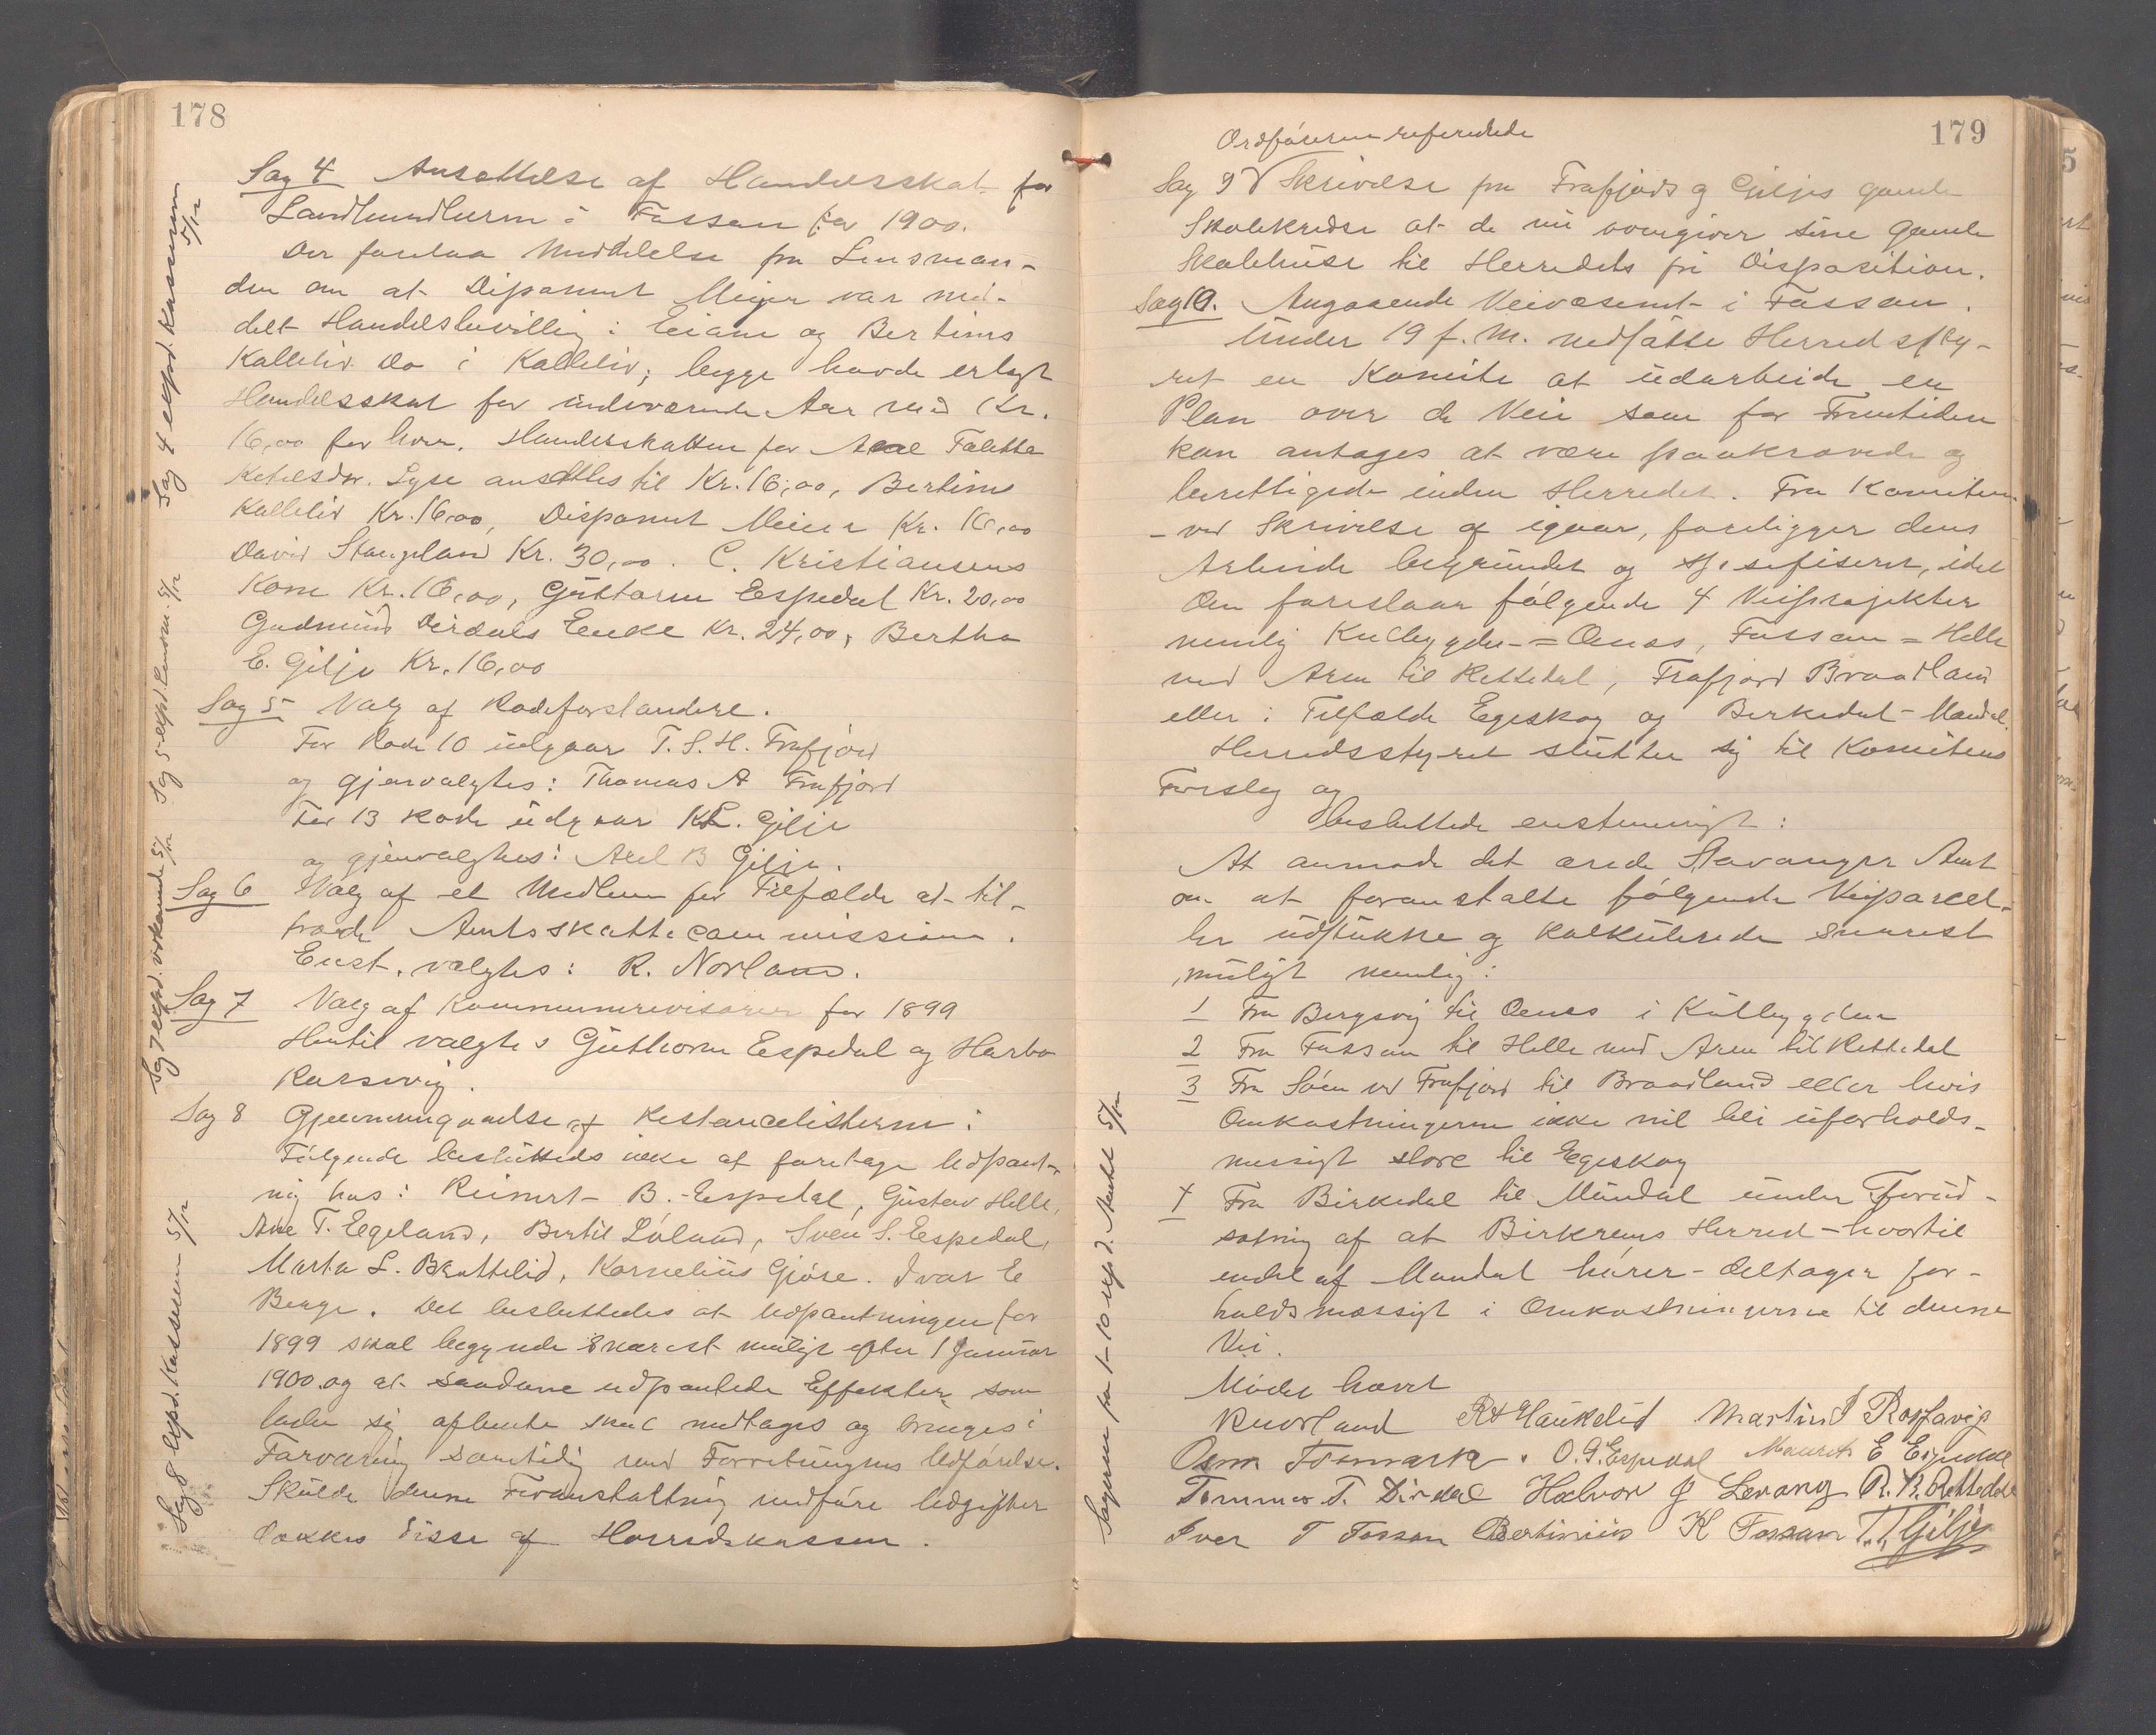 178
Sag 4 Ansættelse af Handelsskat for
Landhandlerne i Fossan for 1900.
Der forelaa Meddelelse fra Lensman-
den om at Disponent Meyer var med-
delt Handelsbevilling i Eiane og Bertinus
Kalleliv Do i Kalleliv; begge havde erlagt
Handelsskat for indeværende Aar med Kr.
16,00 for hver. Handelsskatten for Ane Talette
Ketelsdtr. Lyse ansættes til Kr. 16,00, Bertinus
Kalleliv Kr. 16,00, Disponent Meier Kr. 16,00
David Stangeland Kr. 30,00. C. Kristiansens
Kone Kr. 16,00, Guttorm Espedal Kr. 20,00
Gudmund Dirdals Enke Kr. 24,00, Bertha
E. Gilje Kr. 16,00
Sag 5 Valg af Rodeforstandere.
For Rode 10 udgaar T. S. H. Frafjord
og gjenvalgtes: Thomas A Frafjord
For 13 Rode udgaar K. L. Gilje
og gjenvalgtes: Axel B Gilje.
Sag 6 Valg af et Medlem for Tilfælde at til-
træde Amtsskattecommissionen.
Enst. valgtes: R. Norland.
Sag 7 Valg af Kommunerevisorer for 1899
Hertil valgtes Guthorm Espedal og Harbo
Rarsvig.
Sag 8 Gjennemgaaelse af Restancelisterne:
Følgende besluttedes ikke at foretage Udpant-
ning hos: Reinert B. Espedal, Gustav Helle,
Ane T. Egeland, Bertil Løland, Sven S. Espedal,
Marta L. Brattelid, Kornelius Gjøse. Ivar E
Berge. Det besluttedes at Udpantningen for
1899 skal begynde snarest muligt efter 1 Januar
1900 og at saadanne udpantede Effekter som
lader sig afhente skal medtages og bringes i
Forvaring samtidig med Forretningens Udførelse.
Skulde denne Foranstaltning medføre Udgifter
dækkes disse af Herredskassen.
Sag 4 expd. Kasseren 5/12
Sag 5 expd. Lensm. 5/12
Sag 7 expd. vedkomde 5/12
Sag 8 expd. Kasseren 5/12
179
Ordføreren refererede
Sag 9 Skrivelse fra Frafjords og Giljes gamle
Skolekredse at de nu overgiver sine gamle
Skolehuse til Herredets fri Disposition.
Sag 10. Angaaende Veivæsenet i Fossan.
Under 19 f. M. nedsatte Herredssty-
ret en Komite at udarbeide en
Plan over de Veie som for Fremtiden
kan antages at være paakrævede og
berettigede inden Herredet. Fra Komiteen
- ved Skrivelse af igaar, foreligger dens
Arbeide begrundet og spesifiseret, idet
den foreslaar følgende 4 Veiprojekter
nemlig Kulbygden = Oenes, Fossan = Helle
med Arm til Rettedal, Frafjord Braadland
eller i Tilfælde Egeskog og Birkedal - Maudal.
Herredsstyret slutter sig til Komiteens
Forslag og
besluttede enstemmigt:
At anmode det ærede Stavanger Amt
om at foranstalte følgende Veiparcel-
ler udstukne og kalkulerede snarest
muligt nemlig:
1 Fra Bergsvig til Oenes i Kulbygden
2 Fra Fossan til Helle med Arm til Rettedal
3 Fra Søen ved Frafjord til Braadland eller hvis
Omkostningerne ikke vil bli uforholds-
mæssigt store til Egeskog
4 Fra Birkedal til Maudal under Forud-
sætning af at Birkrems Herred - hvortil
endel af Maudal hører - deltager for-
holdsmæssigt i Omkostningerne til denne
Vei.
Mødet hævet
R Norland R H Haukelid Martin J Rossavig
Osm Fosmark. O. G. Espedal Maurits E Espedal
Tommes T. Dirdal Halvor J Levang R. B. Rettedal
Iver T Fossan Bertinius K Fossan T. T. Gilje
Sagerne fra 1-10 exp. d. Amtet 5/12